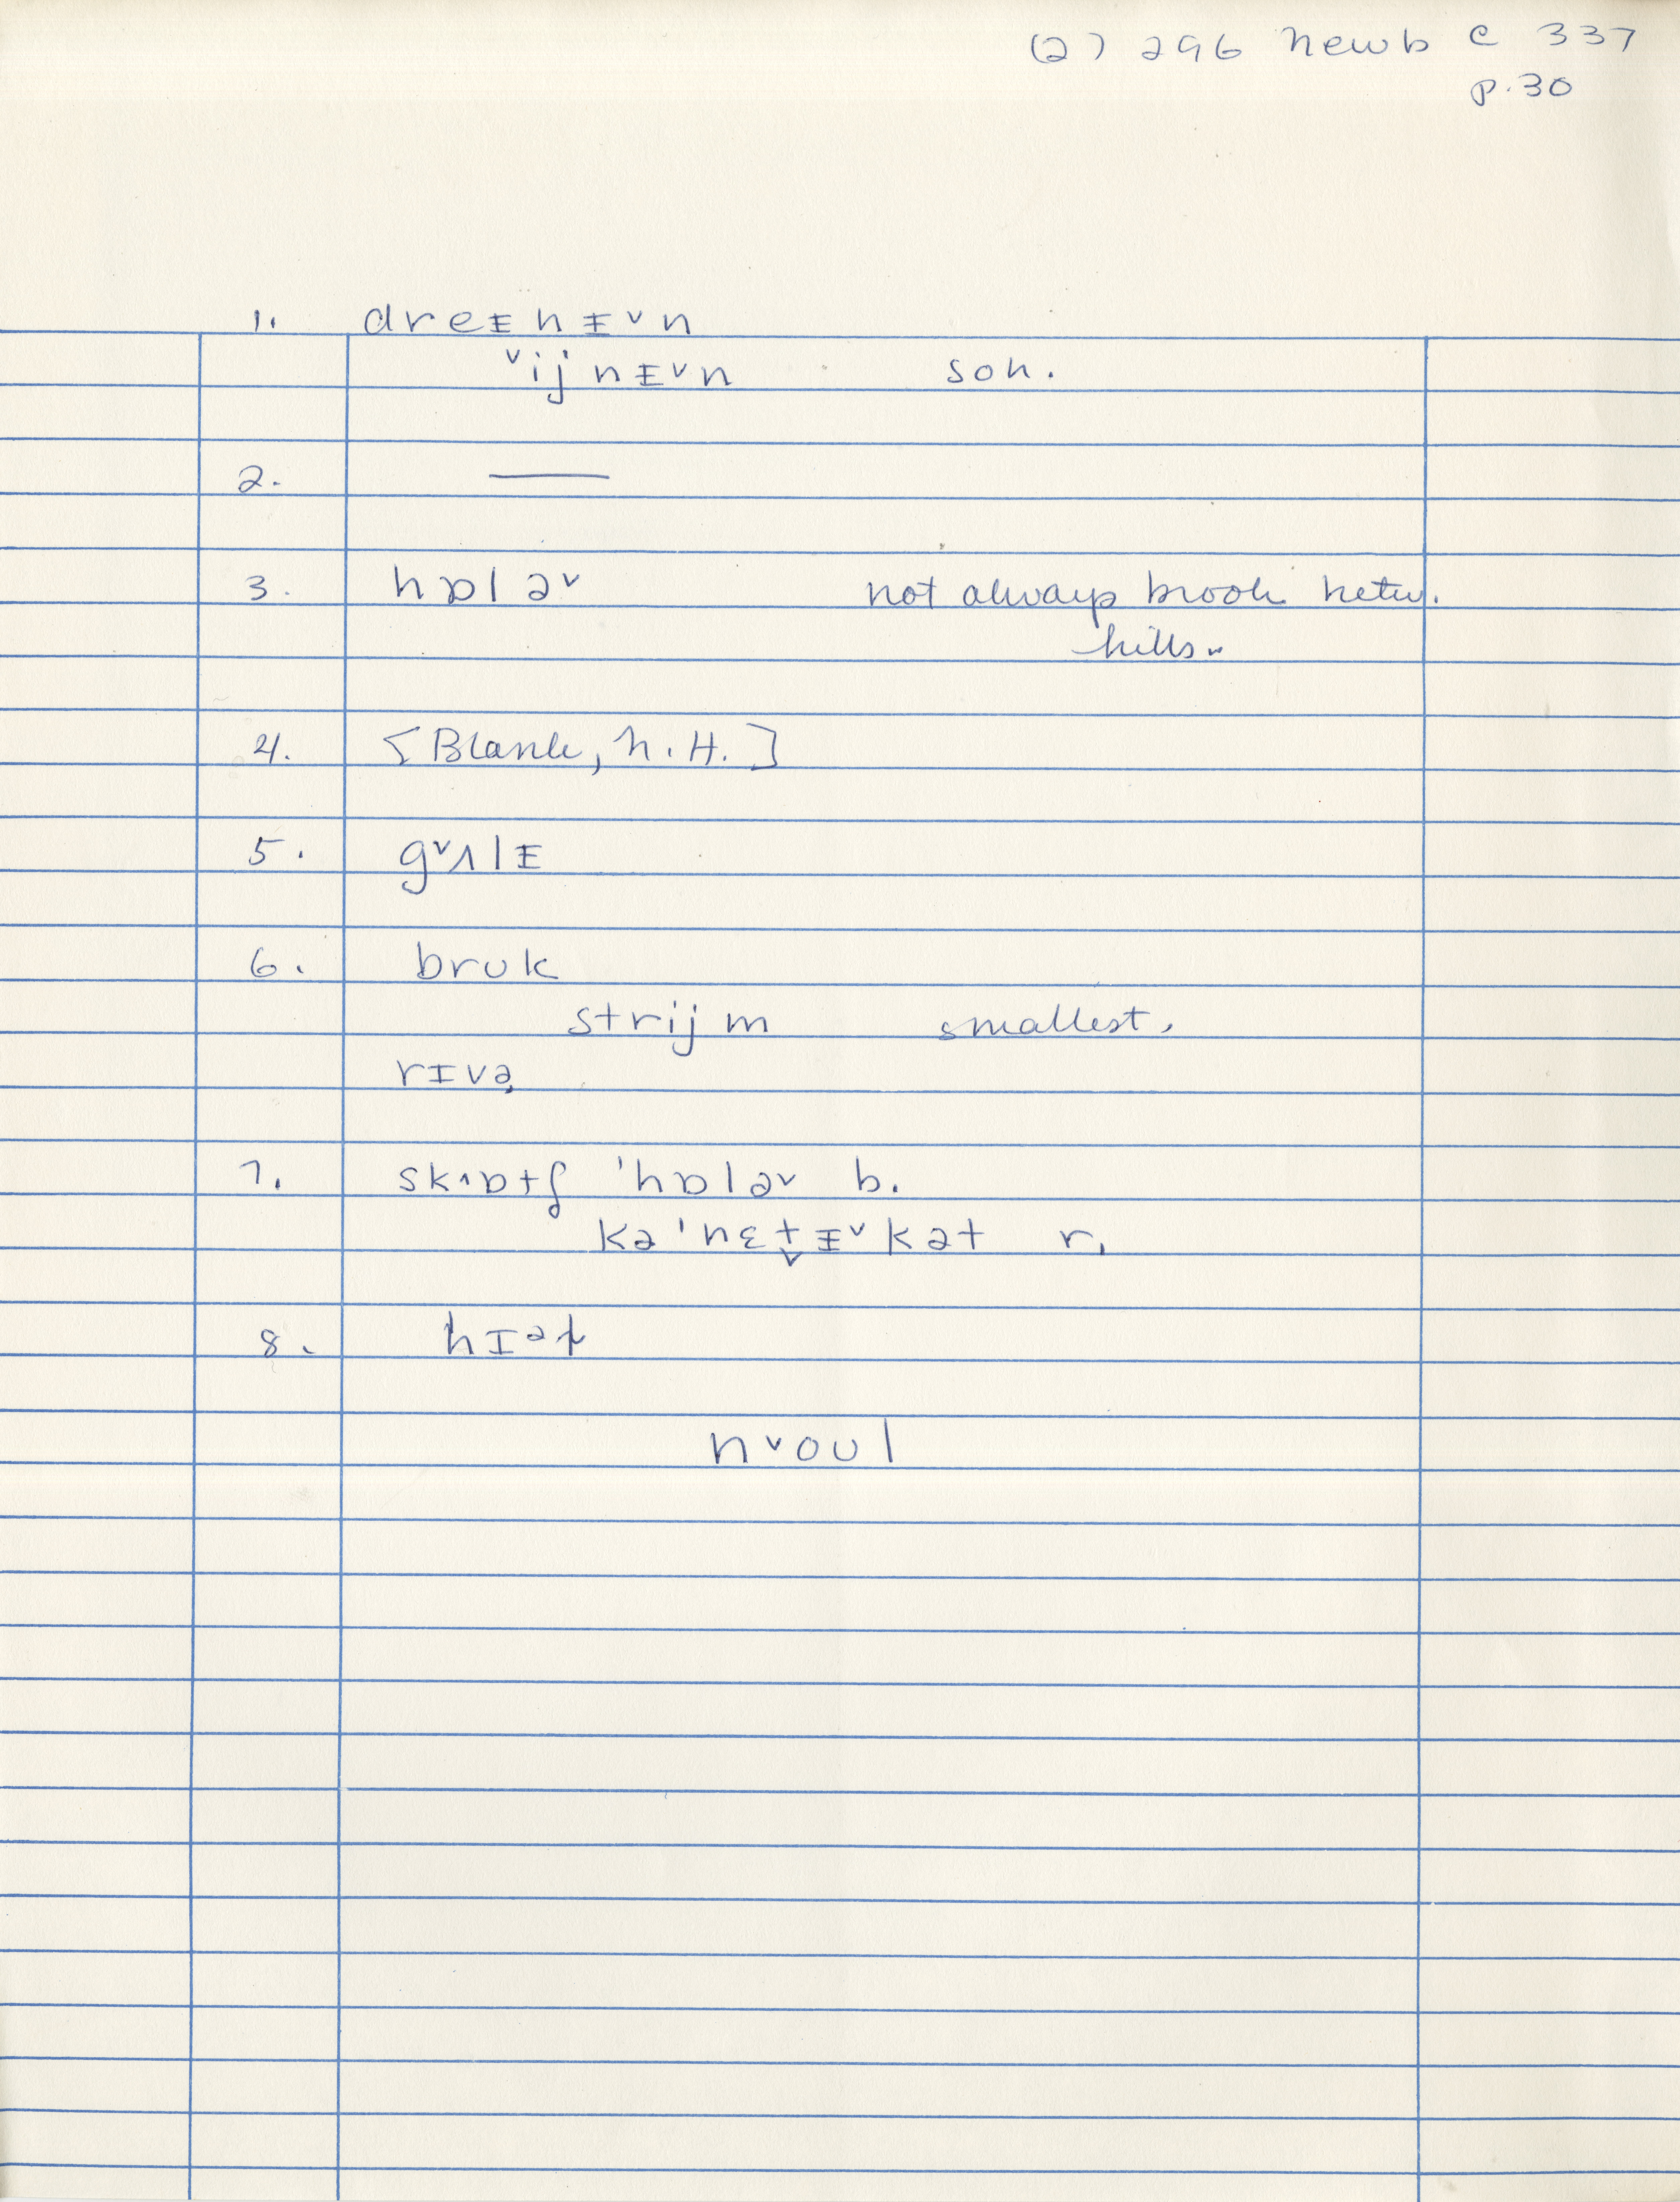 (2) 296 Newb C 337
p. 30
1. dreᵻnᵻ˅n
˅ijnᵻ˅n son.
2. ——
3. hɒlə˅ not always brook betw.
hills.
4. [Blank, N.H.]
5. g˅ʌlᵻ
6. brᴜk
strijm smallest.
rɪvə̢
7. sk˄ɒtʃ 'hɒlə˅ b.
kə'nɛt̬ᵻ˅kət r.
8. hɪᵊ
n˅oᴜl